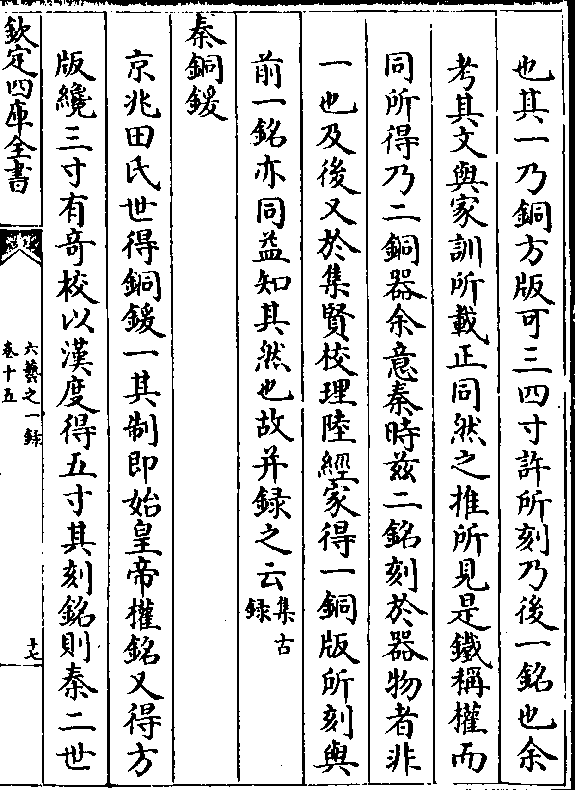 也其一乃銅方版可三四寸許所刻乃後一銘也余
考其文與家訓所載正同然之推所見是鐵稱權而
同所得乃二銅器余意秦時兹二銘刻於器物者非
一也及後又於集賢校理陸經家得一銅版所刻與
前一銘亦同益知其然也故并録之云集古
録
秦銅鍰
京兆田氏世得銅鍰一其制即始皇帝權銘又得方
版纔三寸有竒校以漢度得五寸其刻銘則秦二世
欽定四庫全書
六藝之一録
卷十五
十七